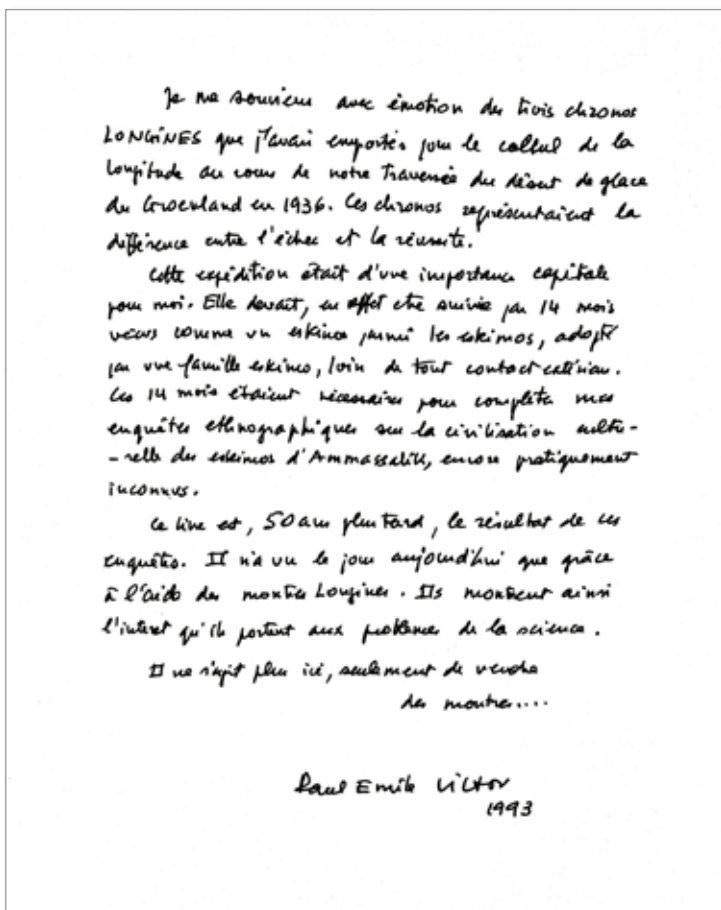 Je me souviens avec émotion des trois chronos
LONGINES que j'avais emportés pour le calcul de la
longitude au cours de notre Traversée du désert de glace
du Groenland en 1936. Ces chronos représentaient la
différence entre l'échec et la réussite.
Cette expédition était d'une importance capitale
pour moi. Elle devait, en effet être suivie par 14 mois
vécus comme un eskimo parmi les eskimos, adopté
par une famille eskimo, loin de tout contact extérieur.
Ces 14 mois étaient nécessaires pour compléter mes
enquêtes ethnographiques sur la civilisation cultu-
-relle des eskimos d'Ammassalik, encore pratiquement
inconnus.
Ce livre est, 50 ans plus Tard, le résultat de ces
enquêtes. Il n'a vu le jour aujourd'hui que grâce
à l'aide des montres Longines. Ils montrent ainsi
l'interet qu'ils portent aux problèmes de la science.
Il ne s'agit plus ici, seulement de vendre
des montres....
Paul Emile Victor
1993